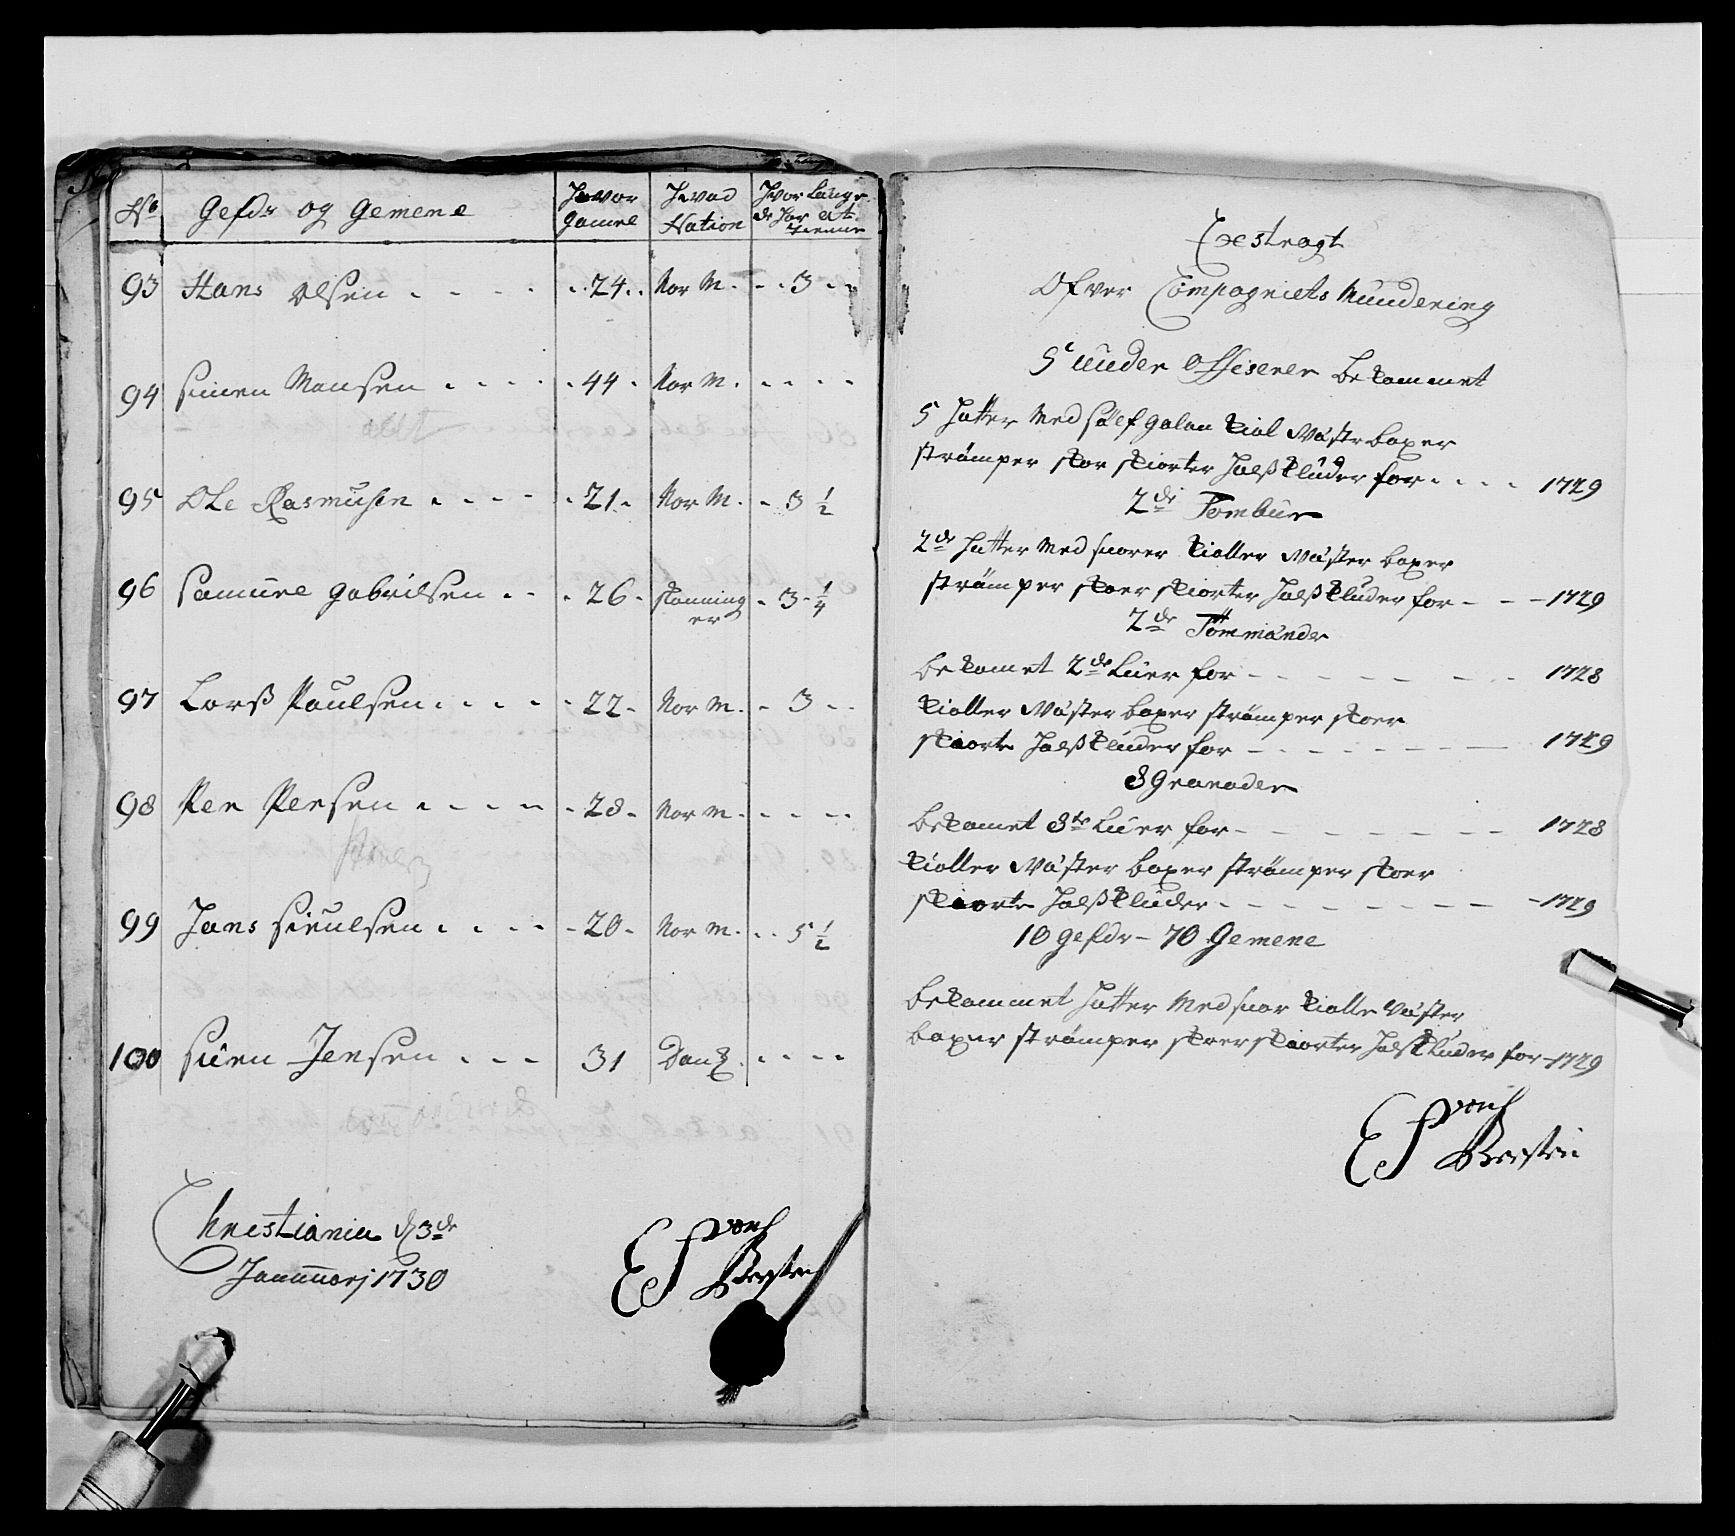 No Gefdr og Gemene Hvor Gamel Hvad Nation Hvor Længe de Har
93 Hans Olsen 24 Nor M. 3
94 Simen Monsen 44 Nor M.
95 Ole Rasmusen 21 Nor M. 3 1/2
96 Samuel Gabrilsen 26 Skaaninger 3 1/4
97 Larß Paulsen 22 Nor M. 3
98 Per Persen 28 Nor M.
99 Jans Sieulsen 20 Nor M. 5 1/2
100 Sören Jensen 31 Dansk
Christiania d 3de
Januuarj 1730
E P von Bersten
Exstragt
Ofver Compagniets Mundering
5 under Officerer bekommet
5 Hatter Med Sølf galon kiol Väster boxer
strömper skoe skiorter Halßklüder for 1729
2de Tombur
2de Hatter Med snorer kioller Väster boxer
strömper skoer skiorter Halßkluder for 1729
2de Tömmände
bekomet 2de Luer for 1728
kioller Väster boxer strömper skoer
skiorte Halßklüder for 1729
8 Granader
bekomet 8te Luer for 1728
kioller Väster boxer strömper skoer
skiorte Halßklüder 1729
10 Gefdr - 70 Gemene
bekommet Hatter Med snor kiolle Väster
boxer strömper skoer skiorter Halskluder for 1729
E P von Bersten